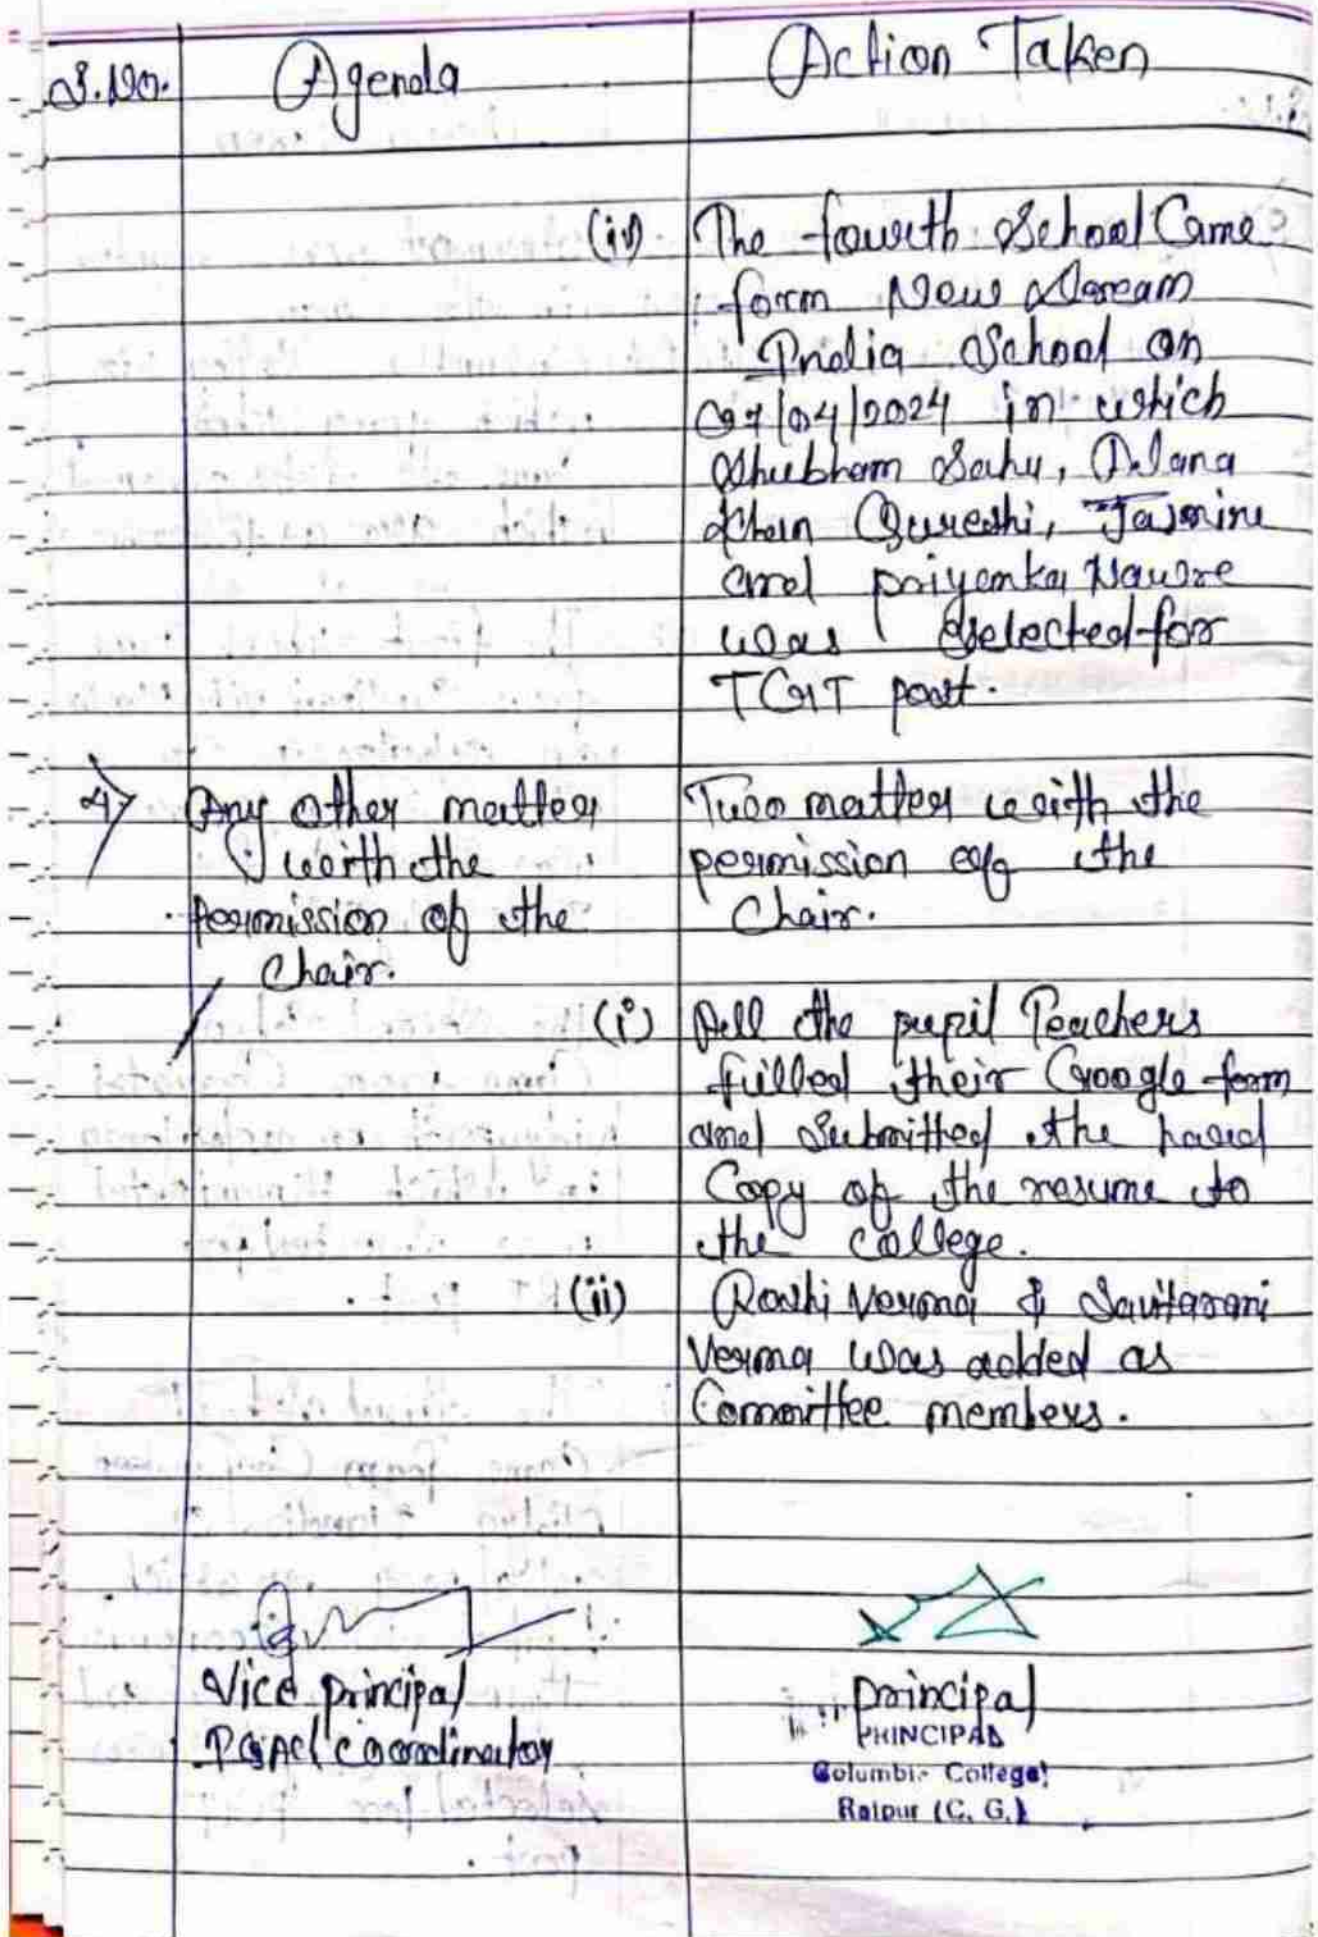 S.No. Agenda Action Taken
(iv) The fourth School Came
form New Dream
India School on
07/04/2024 in which
Shubham Sahu,
Khan Qureshi, Jasmine
and priyanka
was Selected for
TGT post.
4) Any other matter Two matter with the
with the permission of the
permission of the Chair.
Chair.
(i) All the pupil Teachers
filled their Google form
and Submitted the hard
Copy of the resume to
the college.
(ii) Rashi Verma & Savitarani
Verma was added as
Committee members.
Vice principal principal
coordinator PRINCIPAL
Columbia College
Raipur (C. G.)